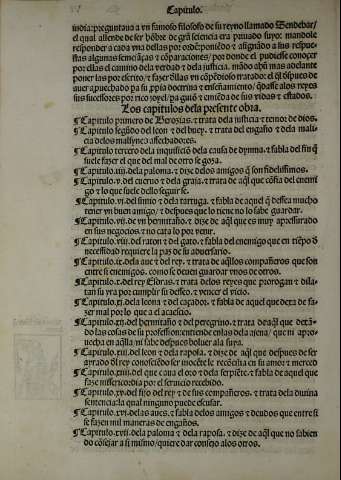 Capitulo.
india: preguntaua a vn famoso filosofo de su reyno llamado Sendebar/
el qual assende de ser hõbre de grã sciencia era priuado suyo: mandole
responder a cada vna dellas por ordẽ poniẽdo ⁊ assignãdo a sus respue
stas algunas semejãças ⁊ cõparaciones/ por donde el pudiesse conocer
por ellas el camino dela verdad ⁊ dela justicia. mãdo aun mas adelante
poner las por escrito/ ⁊ fazer dllas vn cõpẽdioso tratado: el q̃l despues de
auer aprouechado pa su ꝓpia doctrina ⁊ enseñamiẽto/ q̃dasse alos reyes
sus successores por rico joyel/ pa guia ⁊ emiẽda de sus vidas ⁊ estados.
Los capitulos dela presente obra.
¶ Capitulo primero de Berozias. ⁊ trata dela justicia ⁊ temor de dios.
¶ Capitulo segũdo del leon ⁊ del buey. ⁊ trata del engaño ⁊ dela mali
cia delos malsynes ⁊ assechadores.
¶ Capitulo tercero dela inquisiciõ dela causa de dymna. ⁊ fabla del fin q̃
suele fazer el que del mal de otro se goza.
¶ Capitulo .iiij. dela paloma. ⁊ dize delos amigos q̃ son fidelissimos.
¶ Capitulo .v. del cueruo ⁊ dela graja. ⁊ trata de aq̃l que cõfia del enemi
go ⁊ lo que suele dello seguir se.
¶ Capitulo .vi. del simio ⁊ dela tartuga. ⁊ fabla de aquel q̃ dessea mucho
tener vn buen amigo/ ⁊ despues que lo tiene no lo sabe guardar.
¶ Capitulo .vij. de vn hermitaño. ⁊ dize de aq̃l que es muy apressurado
en sus negocios. ⁊ no cata lo por venir.
¶ Capitulo .viij. del raton ⁊ del gato. ⁊ fabla del enemigo que en tiẽpo d̃
necessidad requiere la paz de su aduersario.
¶ Capitulo .ix. dela aue ⁊ del rey. ⁊ trata de aq̃llos compañeros que son
entre si enemigos. como se deuen guardar vnos de otros.
¶ Capitulo .x. del rey ⁊ trata delos reyes que prorogan ⁊ dila
tan su yra por cumplir su desseo. ⁊ vencer el vicio.
¶ Capitulo .xi. dela leona ⁊ del caçador. ⁊ fabla de aquel que dexa de fa
zer mal por lo que a el acaescio.
¶ Capitulo .xij. del hermitaño ⁊ del peregrino. ⁊ trata de aq̃l que dexã-
do las cosas de su profession: entiende en las dela ajena/ que ni apro
uecha en aq̃lla: ni sabe despues boluer ala suya.
¶ Capitulo .xiij. del leon ⁊ dela raposa. ⁊ dize de aq̃l que despues de ser
ayrado el rey conosciẽdo ser inocẽte le recõcilia en su amor ⁊ merced
¶ Capitulo .xiiij. del que caua el oro ⁊ dela serpiẽte. ⁊ fabla de aquel que
faze misericordia por el seruicio recebido.
¶ Capitulo .xv. del fijo del rey ⁊ de sus compañeros. ⁊ trata dela diuina
sentencia: la qual ninguno puede escusar.
¶ Capitulo .xvi. delas aues. ⁊ fabla delos amigos ⁊ deudos que entre si
se fazen mil maneras de engaños.
¶ Capitulo .xvij. dela paloma ⁊ dela raposa. ⁊ dize de aq̃l que no sabien
do cõsejar a si mismo/ quiere dar consejo alos otros.